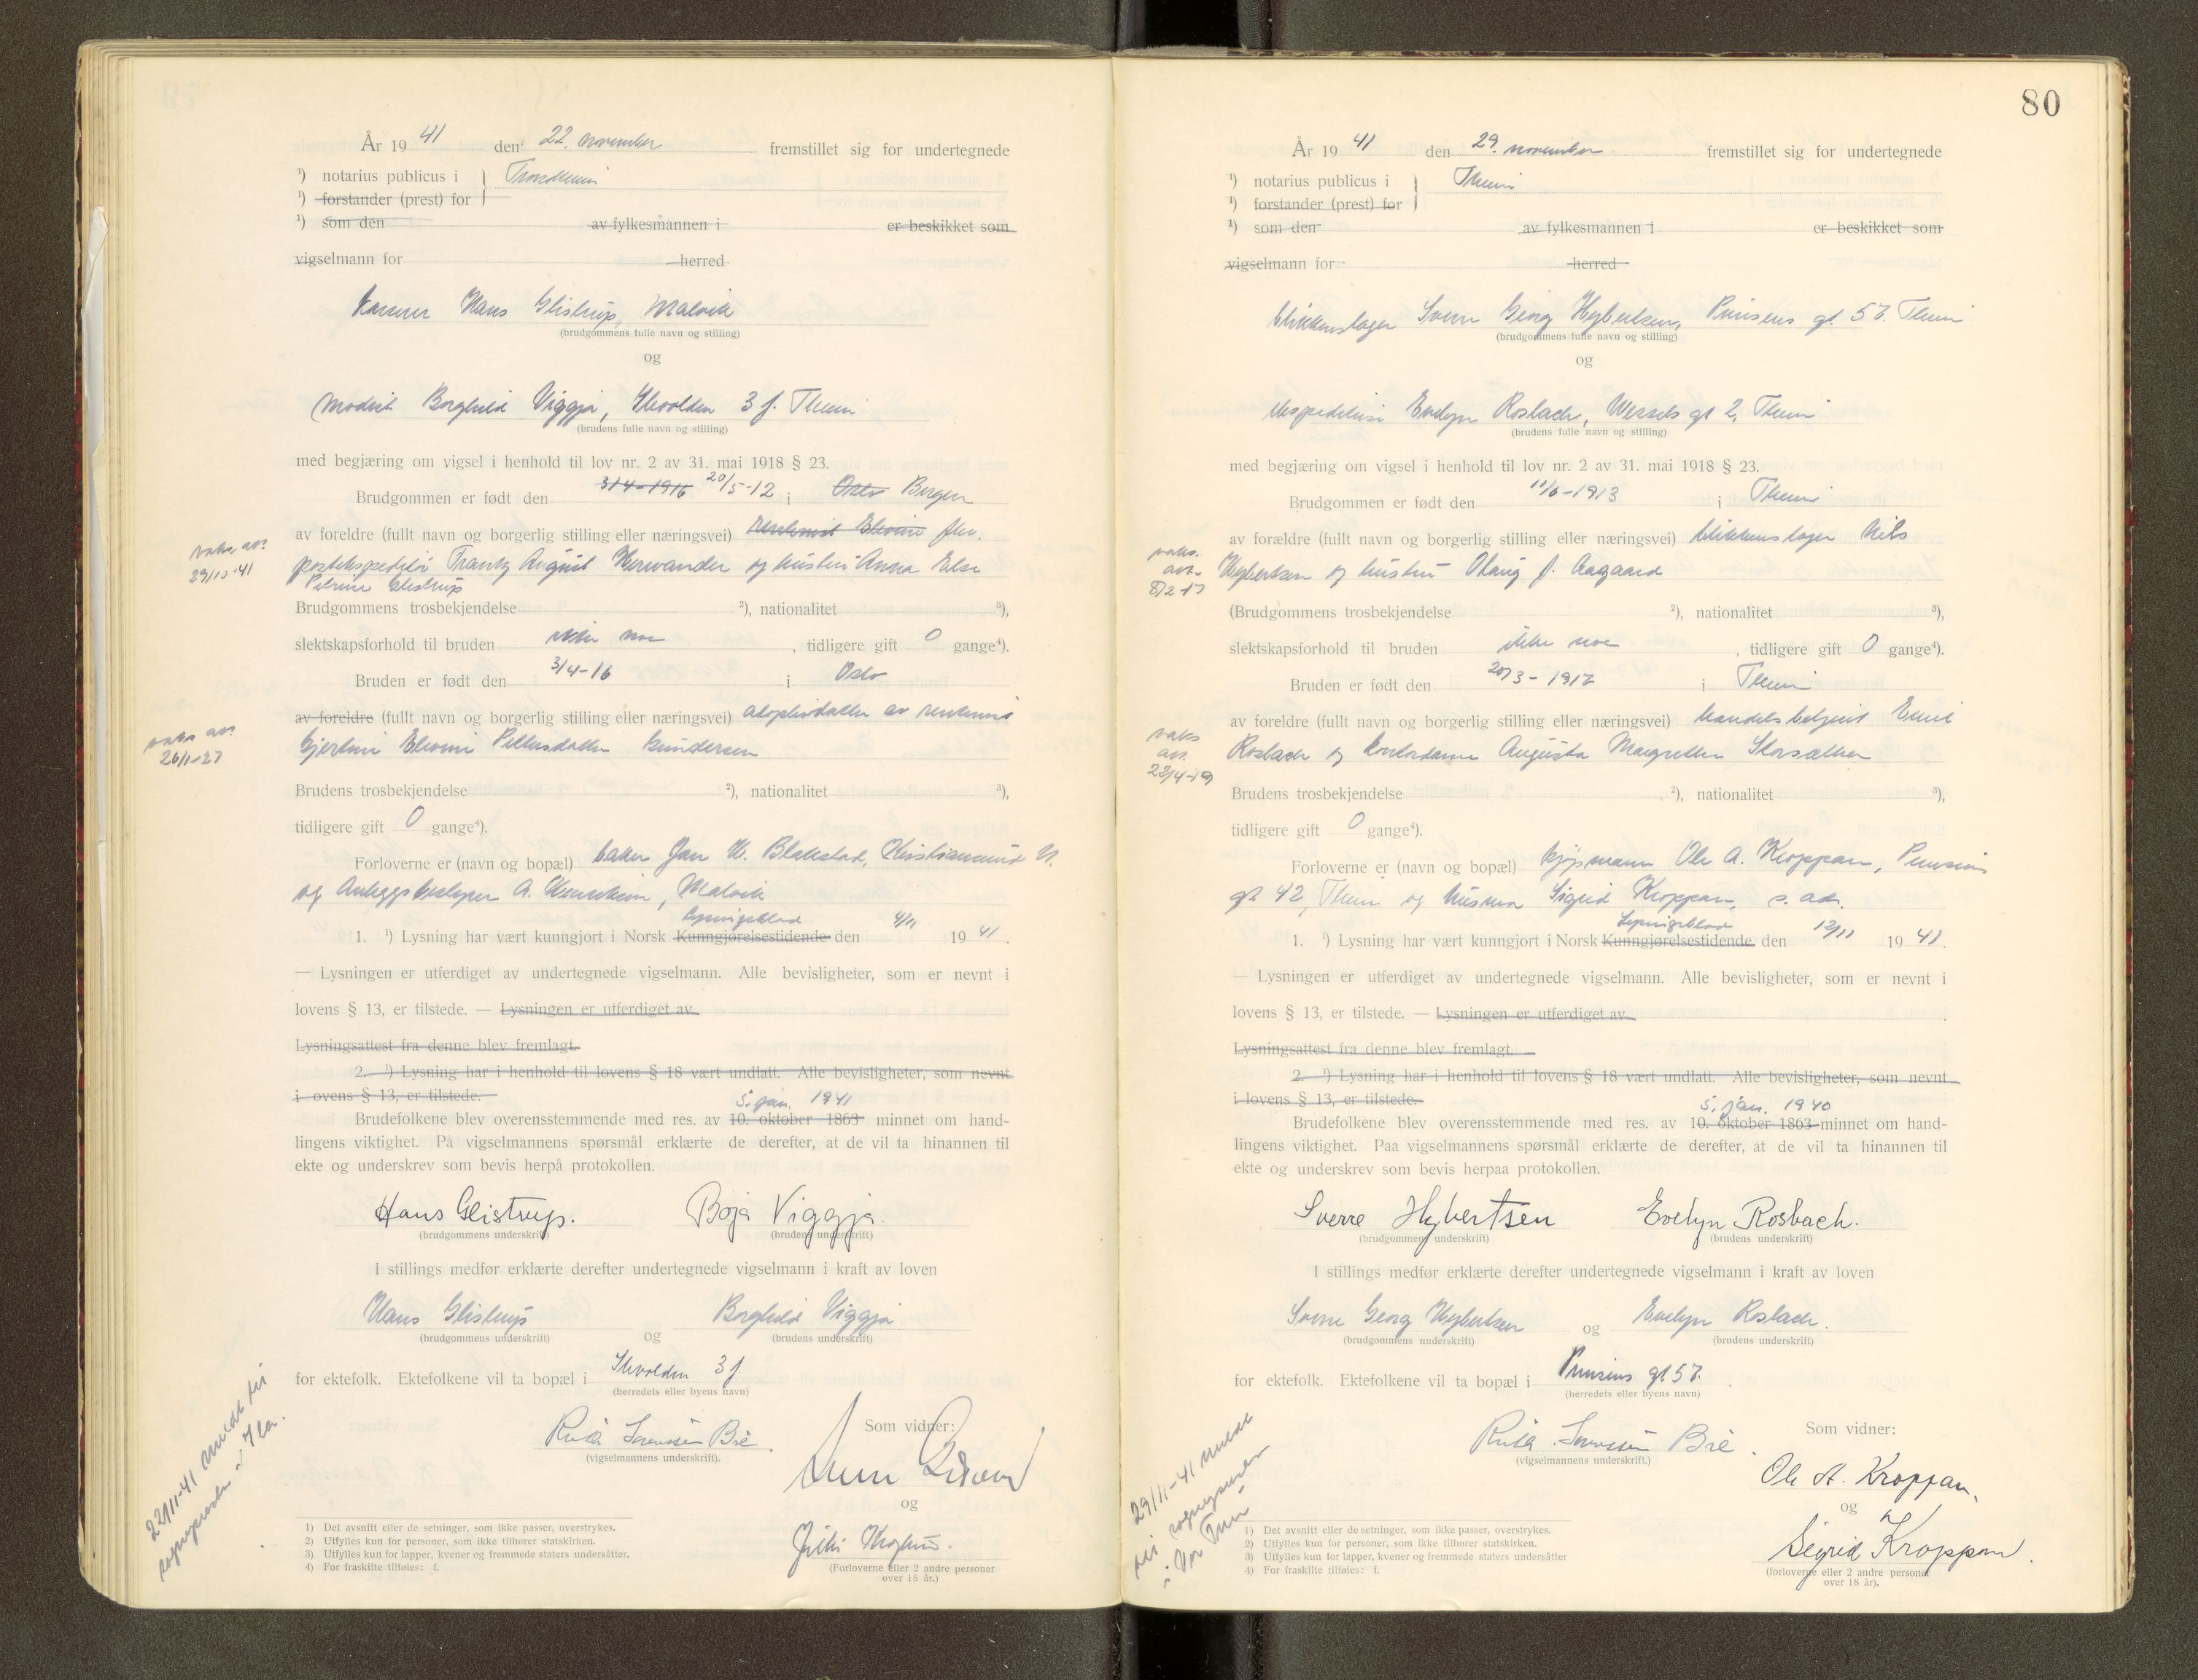 År 1941 den 22. november fremstillet sig for undertegnede
¹) notarius publicus i Trondheim
¹) forstander (prest) for
¹) som den av fylkesmannen i er beskikket som
vigselmann for herred
Hans Glistrup, Malvik
(brudgommens fulle navn og stilling)
og
modist Borghild Viggja, Ilevolden 3 f. Theim
(brudens fulle navn og stilling)
med begjæring om vigsel i henhold til lov nr. 2 av 31. mai 1918 § 23.
Brudgommen er født den 3/4-1916 20/5-12 i Oslo Bergen
av foreldre (fullt navn og borgerlig stilling eller næringsvei) rentenist Elevine fhv.
vaks. att.
29/10-41
postekspeditør Frantz August Herwander og hustru Anna Else
Petrine Glistrup
Brudgommens trosbekjendelse ²), nationalitet ³),
slektskapsforhold til bruden ikke noe, tidligere gift 0 gange⁴).
Bruden er født den 3/4-16 i Oslo
av foreldre (fullt navn og borgerlig stilling eller næringsvei) adoptivdatter av rentenist
vaks att.
26/1-27
Gjertine Elevine Pettersdatter Gundersen
Brudens trosbekjendelse ²), nationalitet ³),
tidligere gift 0 gange⁴).
Forloverne er (navn og bopæl) baker Jan H. Blakstad, Kristiansund N.
og Anleggsbestyrer A. Malvik
Lysningsblad
1. ¹) Lysning har vært kunngjort i Norsk Kunngjørelsestidende den 4/11 1941.
— Lysningen er utferdiget av undertegnede vigselmann. Alle bevisligheter, som er nevnt i
lovens § 13, er tilstede. — Lysningen er utferdiget av
Lysningsattest fra denne blev fremlagt.
2. ¹) Lysning har i henhold til lovens § 18 vært undlatt. Alle bevisligheter, som nevnt
i ovens § 13, er tilstede.
5. jan. 1941
Brudefolkene blev overensstemmende med res. av 10. oktober 1863 minnet om hand-
lingens viktighet. På vigselmannens spørsmål erklærte de derefter, at de vil ta hinannen til
ekte og underskrev som bevis herpå protokollen.
Hans Glistrup. Boja Viggja.
(brudgommens underskrift) (brudens underskrift)
I stillings medfør erklærte derefter undertegnede vigselmann i kraft av loven
Hans Glistrup og Borghild Viggja
(brudgommens underskrift) (brudens underskrift)
for ektefolk. Ektefolkene vil ta bopæl i Ilevolden 3 f
(herredets eller byens navn)
22/11-41 meldt til
sognepresten i Ila.
Som vidner:
(vigselmannens underskrift).
og
(Forloverne eller 2 andre personer
over 18 år.)
1) Det avsnitt eller de setninger, som ikke passer, overstrykes.
2) Utfylles kun for personer, som ikke tilhører statskirken.
3) Utfylles kun for lapper, kvener og fremmede staters undersåtter.
4) For fraskilte tilføies: f.
80
År 1941 den 29. november fremstillet sig for undertegnede
¹) notarius publicus i Theim
¹) forstander (prest) for
¹) som den av fylkesmannen i er beskikket som
vigselmann for herred
blikkenslager Sverre Georg Hybertsen, Prinsens gt. 57. Theim
(brudgommens fulle navn og stilling)
og
ekspeditrise Evelyn Rosbach, Wessels gt 2, Theim
(brudens fulle navn og stilling)
med begjæring om vigsel i henhold til lov nr. 2 av 31. mai 1918 § 23.
Brudgommen er født den 11/6-1913 i Theim
av forældre (fullt navn og borgerlig stilling eller næringsvei) blikkenslager Nils
vaks.
att.
Hybertsen og hustru Olaug f. Aagaard
(Brudgommens trosbekjendelse ²), nationalitet ³),
slektskapsforhold til bruden ikke noe, tidligere gift 0 gange⁴).
Bruden er født den 20/3-1917 i Theim
av foreldre (fullt navn og borgerlig stilling eller næringsvei) handelsbetjent Emil
vaks
att.
22/4-19
Rosbach og kontordame Augusta Margrethe Storsæther
Brudens trosbekjendelse ²), nationalitet ³),
tidligere gift 0 gange⁴).
Forloverne er (navn og bopæl) kjøpmann Ole A. Kroppan, Prinsens
gt 42, Theim og hustru Sigrid Kroppan, s. adr.
Lysningsblad
1. ¹) Lysning har vært kunngjort i Norsk Kunngjørelsestidende den 12/11 1941.
— Lysningen er utferdiget av undertegnede vigselmann. Alle bevisligheter, som er nevnt i
lovens § 13, er tilstede. — Lysningen er utferdiget av
Lysningsattest fra denne blev fremlagt.
2. ¹) Lysning har i henhold til lovens § 18 vært undlatt. Alle bevisligheter, som nevnt
i lovens § 13, er tilstede.
5. jan. 1940
Brudefolkene blev overensstemmende med res. av 10. oktober 1863 minnet om hand-
lingens viktighet. Paa vigselmannens spørsmål erklærte de derefter, at de vil ta hinannen til
ekte og underskrev som bevis herpaa protokollen.
Sverre Hybertsen Evelyn Rosbach.
(brudgommens underskrift) (brudens underskrift)
I stillings medfør erklærte derefter undertegnede vigselmann i kraft av loven
Sverre Georg Hybertsen og Evelyn Rosbach.
(brudgommens underskrift) (brudens underskrift)
for ektefolk. Ektefolkene vil ta bopæl i Prinsens gt. 57.
(herredets eller byens navn)
29/11-41 meldt
til sognepresten
i Vor Frue
Som vidner:
(vigselmannens underskrift.)
Ole A. Kroppan.
og
Sigrid Kroppan.
(forloverne eller 2 andre personer
over 18 år).
1) Det avsnitt eller de setninger, som ikke passer, overstrykes.
2) Utfylles kun for personer, som ikke tilhører statskirken.
3) Utfylles kun for lapper, kvener og fremmede staters undersåtter
4) For fraskilte tilføies: f.